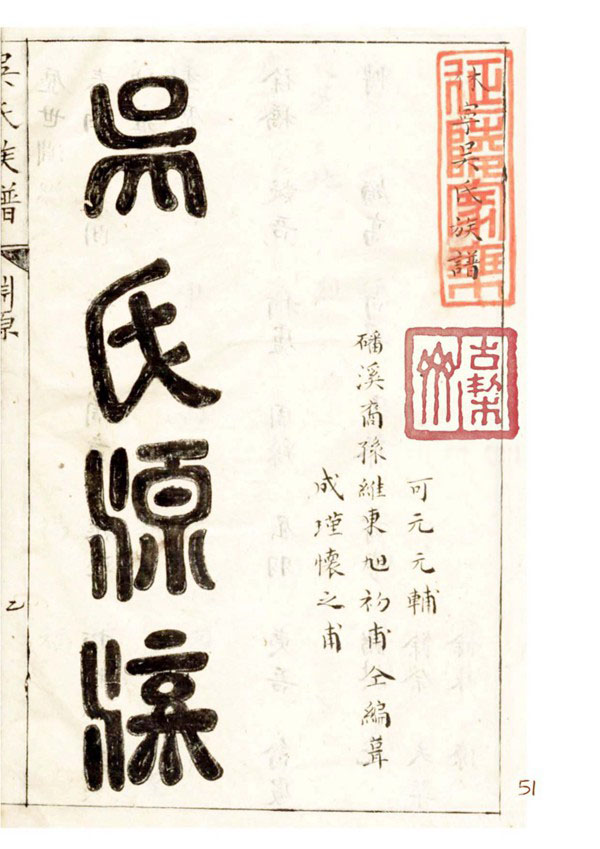 休寧吳氏族譜
可元元輔
磻溪裔孫維東旭初甫仝編葺
成瑾懷之甫
吳氏源流
吳氏族譜
淵源
乙
51